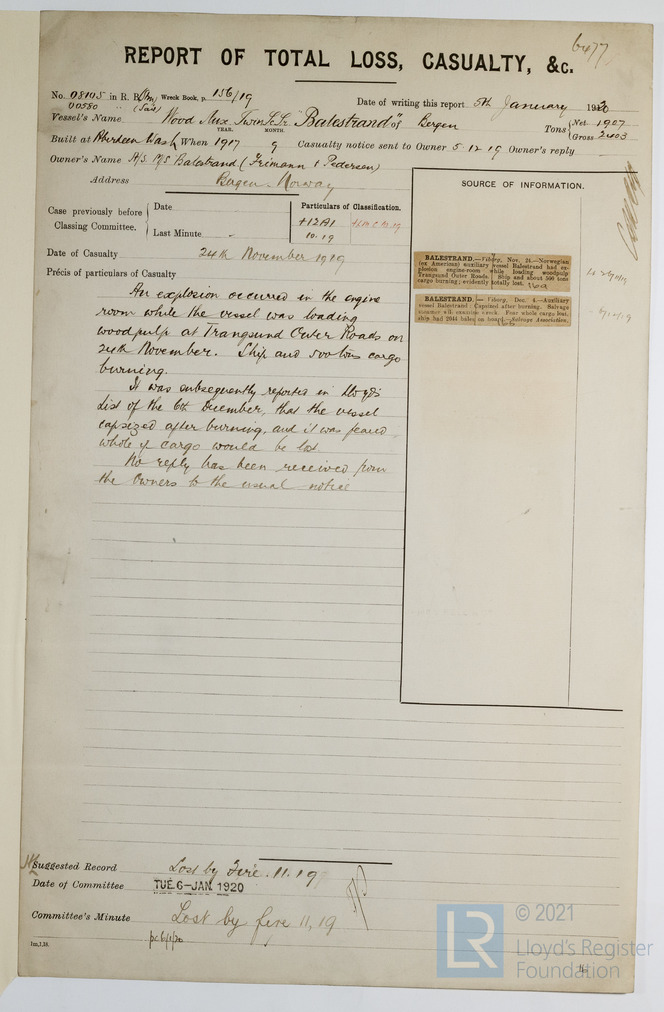 6477
REPORT OF TOTAL LOSS, CASUALTY, &c.
No. 08145 in R. B. (Stm) Wreck Book, p. 156/19
00580 " (Sail)
Date of writing this report 5th January 1920
Vessel's Name Wood Aux Twin Sc Sr "Balestrand" of Bergen
Tons { Net 1907
Gross 2403
YEAR. MONTH.
Built at Aberdeen Wash When 1917 9 Casualty notice sent to Owner 5.12.19 Owner's reply
Owner's Name A/S M/S Balestrand (Frimann & Pedersen)
Address Bergen, Norway
Case previously before Classing Committee. { Date
Last Minute
Particulars of Classification.
+12A1
10.19
+LMC 10.19
Date of Casualty 24th November 1919
Précis of particulars of Casualty
An explosion occurred in the engine
room while the vessel was loading
woodpulp at Trangsund Outer Roads on
24th November. Ship and 500 tons cargo
burning.
It was subsequently reported in Lloyd's
List of the 6th December, that the vessel
capsized after burning, and it was feared
whole of cargo would be lost.
No reply has been received from
the Owners to the usual notice
SOURCE OF INFORMATION.
BALESTRAND.—Viborg, Nov. 24.—Norwegian
(ex American) auxiliary vessel Balestrand had ex-
plosion engine-room while loading woodpulp
Trangsund Outer Roads. Ship and about 500 tons
cargo burning; evidently totally lost.
BALESTRAND.—Viborg, Dec. 4.—Auxiliary
vessel Balestrand: Capsized after burning. Salvage
steamer will examine wreck. Fear whole cargo lost,
ship had 2044 bales on board.—Salvage Association.
Suggested Record Lost by Fire. 11.19
Date of Committee TUE. 6-JAN. 1920
Committee's Minute Lost by fire 11,19
pc 6/1/20
1m,1,18.
LR
© 2021
Lloyd's Register
Foundation